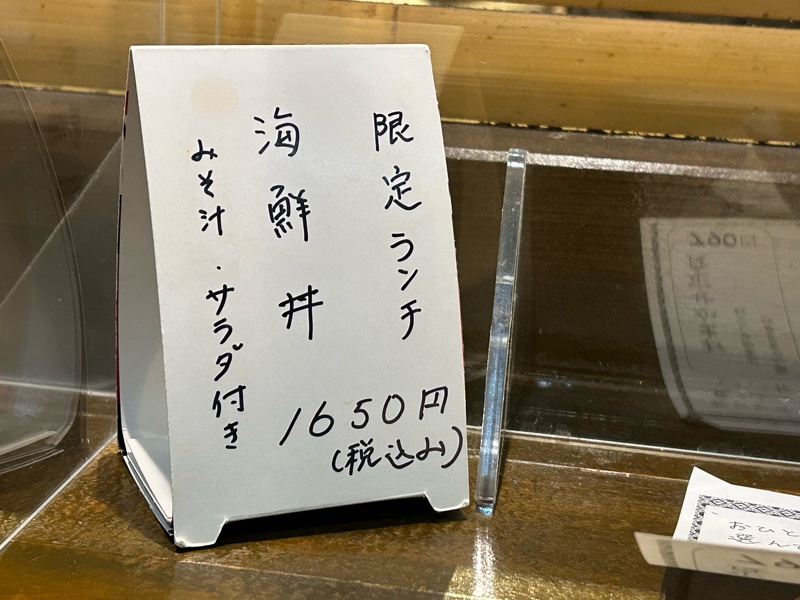 限定ランチ
海鮮丼
みそ汁・サラダ付き
1650円
(税込み)
おひと
選んで